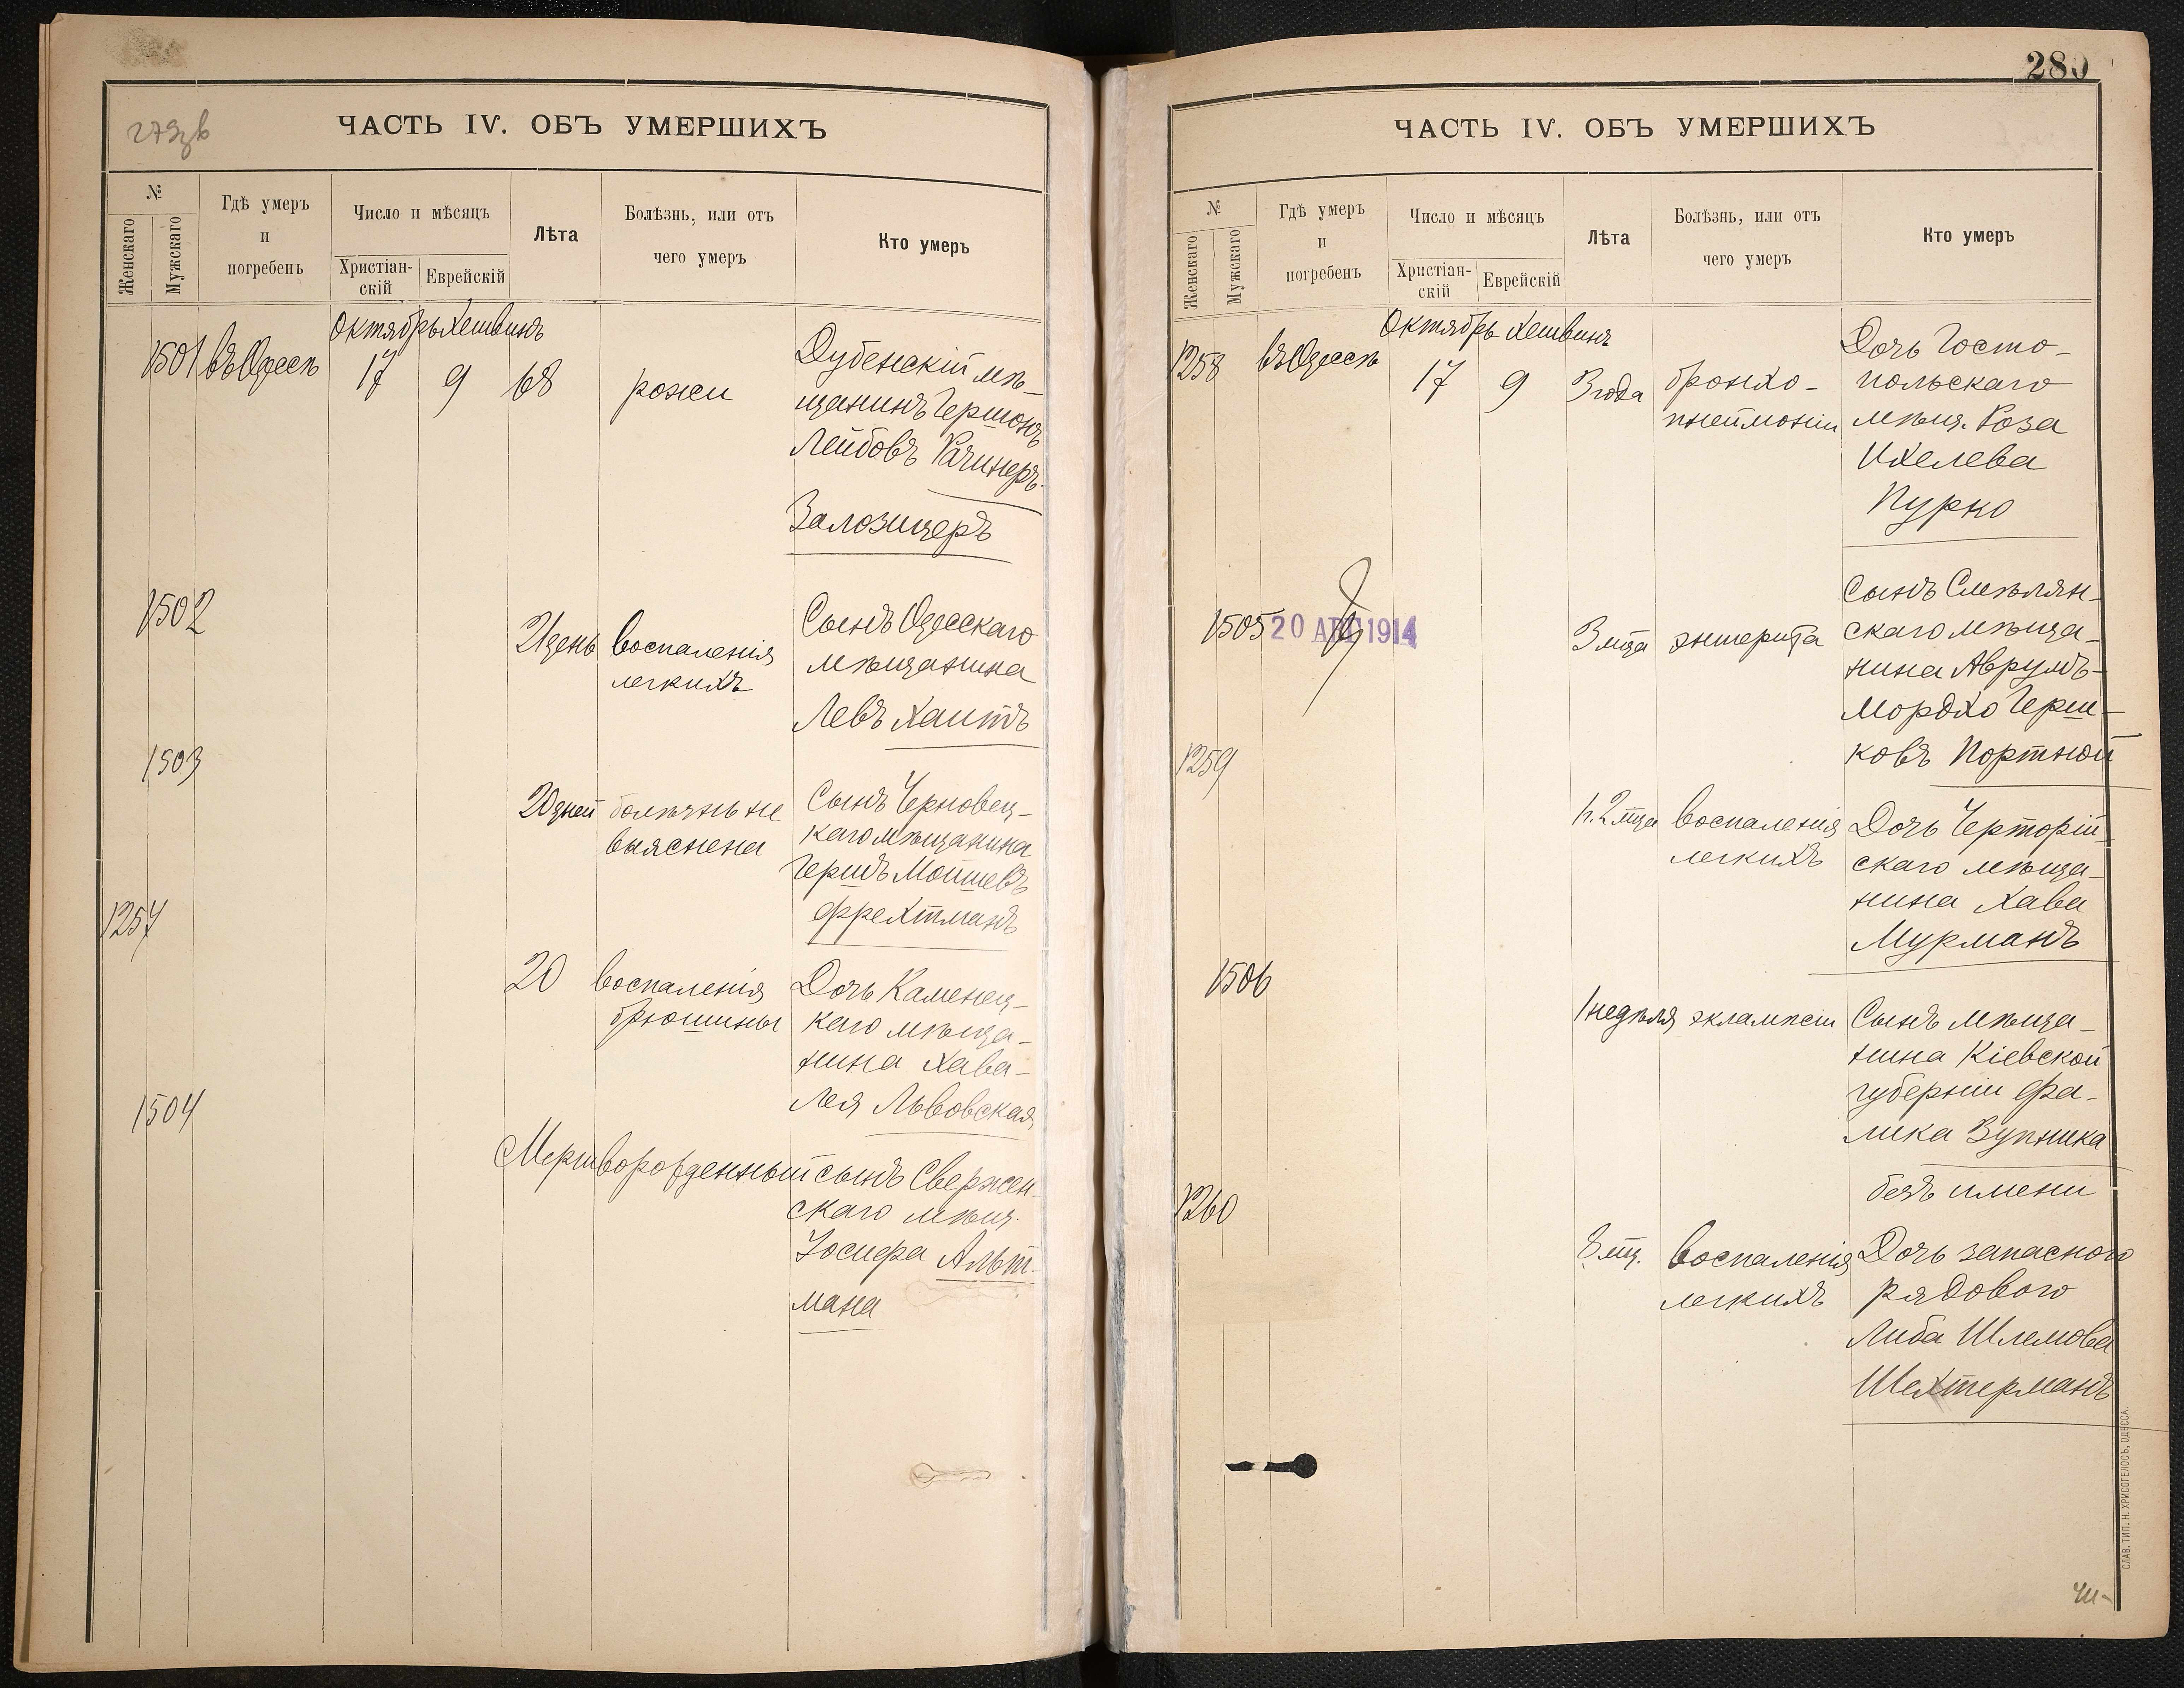 279 зв
ЧАСТЬ IV. ОБЪ УМЕРШИХЪ
№
Женскаго
Мужскаго
Гдѣ умеръ
и
погребенъ
Число и мѣсяцъ
Христіан-
скій
Еврейскій
Лѣта
Болѣзнь, или отъ
чего умеръ
Кто умеръ
Октябрь Хешвинъ
1501 въ Одессѣ 17 9 68 рожи
Дубенскій мѣ-
щанинъ Гершонъ
Лейбовъ Рачинеръ.
Залозицеръ
1502
21 день воспаленія
легкихъ
Сынъ Одесскаго
мѣщанина
Левъ Хаитъ
1503
20 дней болѣзнь не
выяснена
Сынъ Черновец-
каго мѣщанина
Гершъ Мошевъ
Фрехтманъ
1257
20 воспаленія
брюшины
Дочь Каменец-
каго мѣща-
нина Хава-
Лея Львовская
1504
Мертворожденный сынъ Свержен-
скаго мѣщ.
Іосифа Альт-
мана
280
ЧАСТЬ IV. ОБЪ УМЕРШИХЪ
№
Женскаго
Мужскаго
Гдѣ умеръ
и
погребенъ
Число и мѣсяцъ
Христіан-
скій
Еврейскій
Лѣта
Болѣзнь, или отъ
чего умеръ
Кто умеръ
Октябрь Хешвинъ
1258 въ Одессѣ 17 9 3 года бронхо-
пнеймоніи
Дочь Госто-
польскаго
мѣщ. Роза
Ихелева
Пурко
1505 20 АПР 1914
3 мца энтерита
Сынъ Смѣлян-
скаго мѣща-
нина Аврумъ-
Мордхо Герш-
ковъ Портной
1259
1 1/2 мца воспаленія
легкихъ
Дочь Черторій-
скаго мѣща-
нина Хава
Мурманъ
1506
1 недѣля эклампсіи
Сынъ мѣща-
нина Кіевской
губерніи Фа-
лика Зупника
безъ имени
1260
8 мц. воспаленія
легкихъ
Дочь запасного
рядового
Либа Шлемова
Шехтерманъ
СЛАВ. ТИП. Н. ХРИСОГЕЛОСЪ, ОДЕССА.